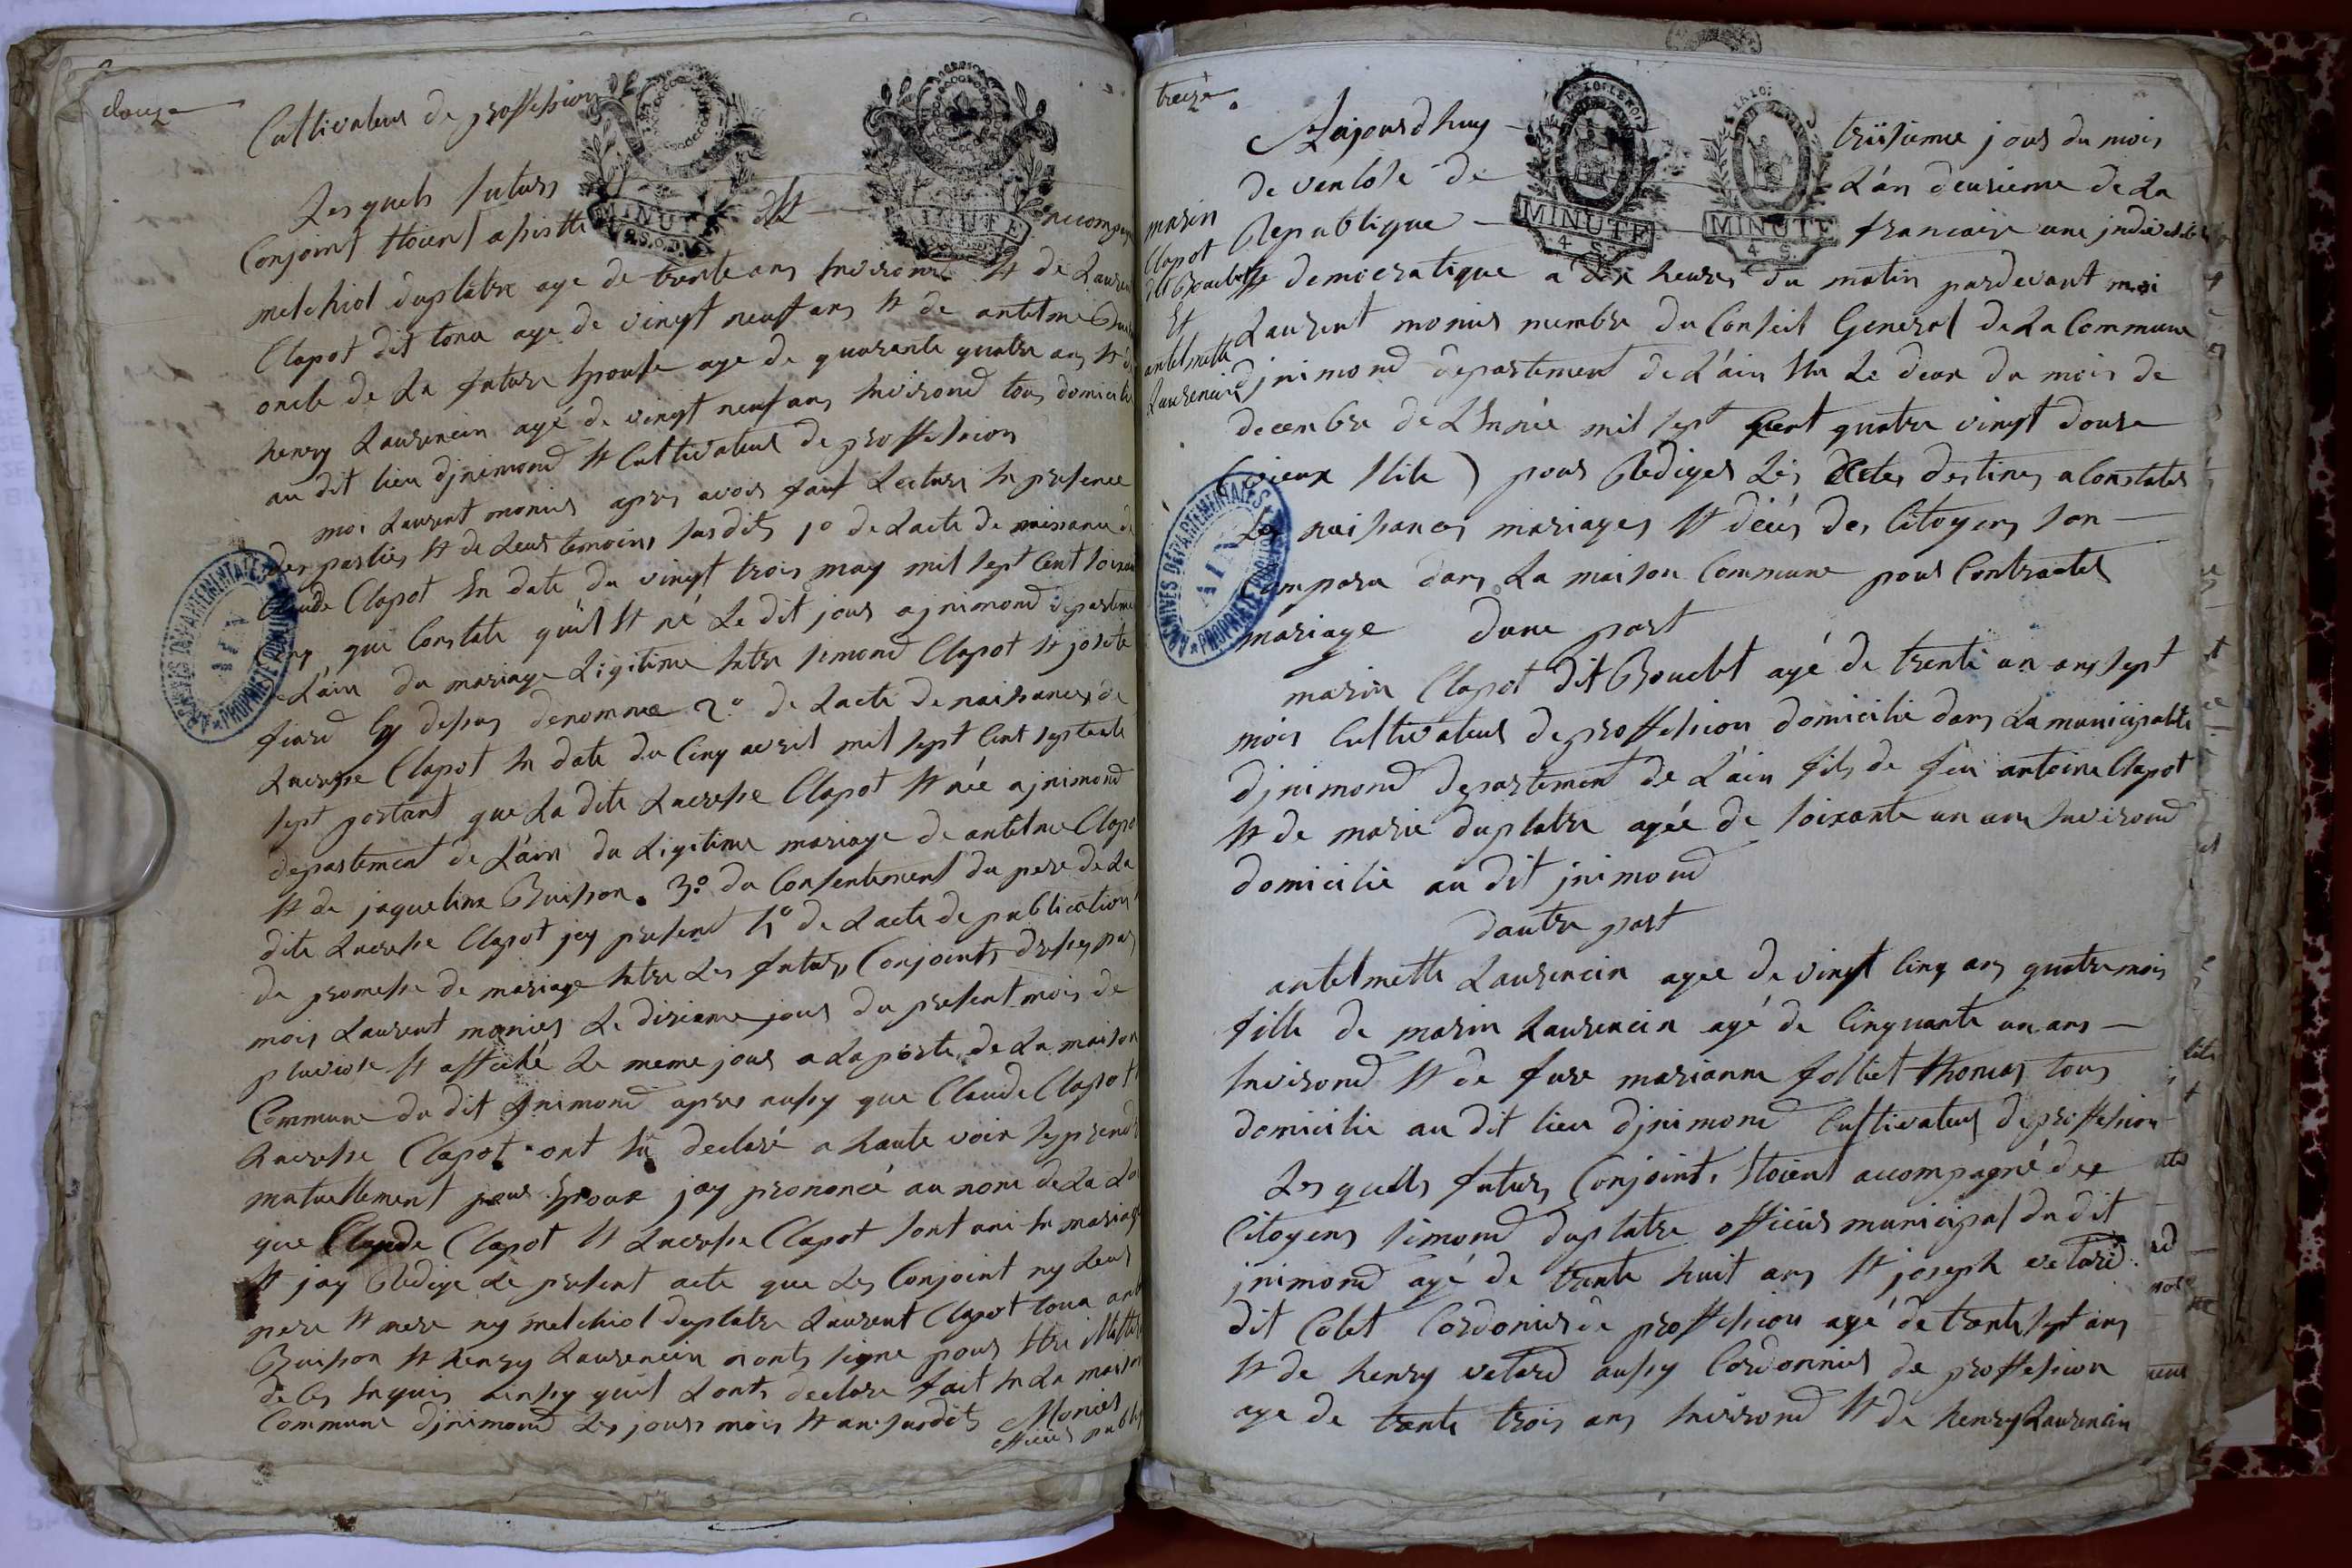 douze
Cultivateur de proffession
Les quels futurs
Conjoint Etoient assistté accompag
melchiol duplatre age de trente ans Environd Et de Laurent
Clapot dit tona age de vingt neuf ans Et de antelme
oncle de La future Epouse age de quarente quatre ans Et de
henry Laurencin agé de vingt neuf ans Environd tous domicilié
au dit lieu djnimond Et Cultivateur de proffession
moi Laurent monier apres avoir fait Lecture En presence
des parties Et de Leur temoins susdits 1º de Lacte de naissance de
Claude Clapot En date du vingt trois may mil sept Cent soixan
Cinq qui Constate quil Et né Le dit jour a jnimond departeme
de L'ain du mariage Legitime Entre simond Clapot Et josete
fiard Cy dessus denommé 2º de Lacte de naissances de
Lucresse Clapot En date du Cinq avril mil sept Cent septente
sept portant que La dite Lucresse Clapot Et née a jnimond
departement de L'ain du Legitime mariage de antelme Clapo
Et de jaqueline Buisson. 3º du Consentement du pere de La
dite Lucresse Clapot jcy present 4º de Lacte de publication
de promesse de mariage Entre Les futurs Conjoints dressés par
moi Laurent monier Le dixieme jour du present mois de
pluviose Et affiché Le meme jour a La porte de La maison
Commune du dit Jnimond apres aussy que Claude Clapot Et
Lucresse Clapot ont Eu declaré a haute voix se prendre
mutuellement pour Epoux jay prononcé au nom de La Loi
que Claude Clapot Et Lucresse Clapot sont uni En mariage
Et jay Redige Le present acte que Les Conjoint ny Leur
pere Et mere ny melchiol duplatre Laurent Clapot tona ant
Buisson Et henry Laurencin nonts signe pour Etre illettré
de Ce Enquis ainsy quil Lonts declare fait En La maison
Commune djnimond Les jours mois Et an susdits Monier
officier public
treize
Aujourdhuy troisieme jour du mois
de ventose de L'an deuxieme de La
Republique francaise une jndivisible
Et democratique a dix heures du matin pardevant moi
marin
Clapot
dit Bouclet
Et
antelmette
Laurencin
Laurent monier membre du Conseil General de La Commune
djnimond departement de L'ain Elu Le deux du mois de
decembre de L'Année mil sept Cent quatre vingt douze
(vieux stile) pour Rediger Les Actes destines a Constater
Les naissances mariages Et décès des Citoyens son
Comparu dans La maison Commune pour Contracter
mariage dune part
marin Clapot dit Bouclet agé de trente un ans sept
mois Cultivateur de proffession domicilié dans La municipalité
djnimond departement de L'ain fils de feu antoine Clapot
Et de marie duplatre agée de soixante un ans Environd
domicilie au dit jnimond
dautre part
antelmette Laurencin agee de vingt Cinq ans quatre mois
fille de marin Laurencin agé de Cinquante un ans
Environd Et de fure marianne folliet thomas tous
domicilié au dit lieu djnimond Cultivateur de proffession
Les quells futurs Conjoint, Etoient accompagné des
Citoyens simond duplatre officier municipal du dit
jnimond agé de trente huit ans Et joseph vetard
dit Colet Cordonier de proffession agé de trente sept ans
Et de henry vetard aussy Cordonnier de proffession
age de trente trois ans Environd Et de henry Laurencin
MINUTE
MINUTE
MINUTE
4 S.
MINUTE
4 S.
ARCHIVES DÉPARTEMENTALES
AIN
PROPRIÉTÉ PUBLIQUE
ARCHIVES DÉPARTEMENTALES
AIN
PROPRIÉTÉ PUBLIQUE